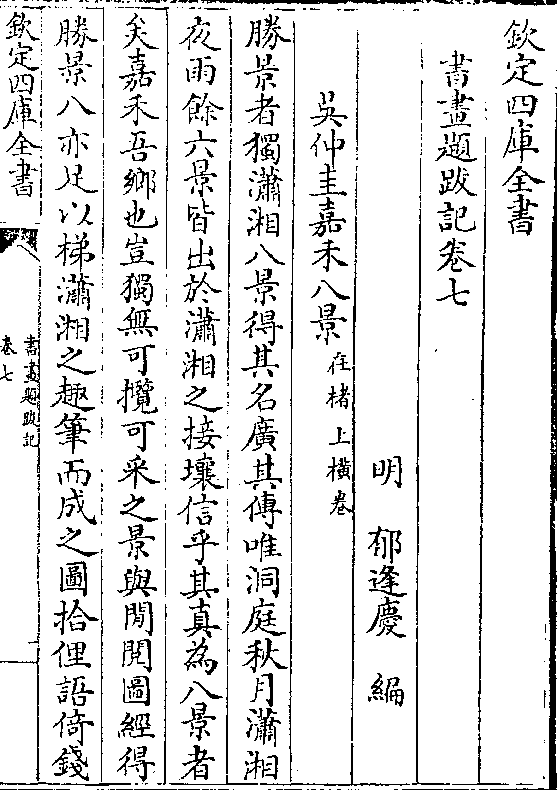 欽定四庫全書
書畫題跋記卷七
明 郁逢慶 編
吳仲圭嘉禾八景在楮上橫卷
勝景者獨瀟湘八景得其名廣其傳唯洞庭秋月瀟湘
夜雨餘六景皆出於瀟湘之接壤信乎其真為八景者
矣嘉禾吾鄉也豈獨無可攬可采之景與閒閱圖經得
勝景八亦足以梯瀟湘之趣筆而成之圖拾俚語倚錢
欽定四庫全書
書畫題跋記
卷七
一